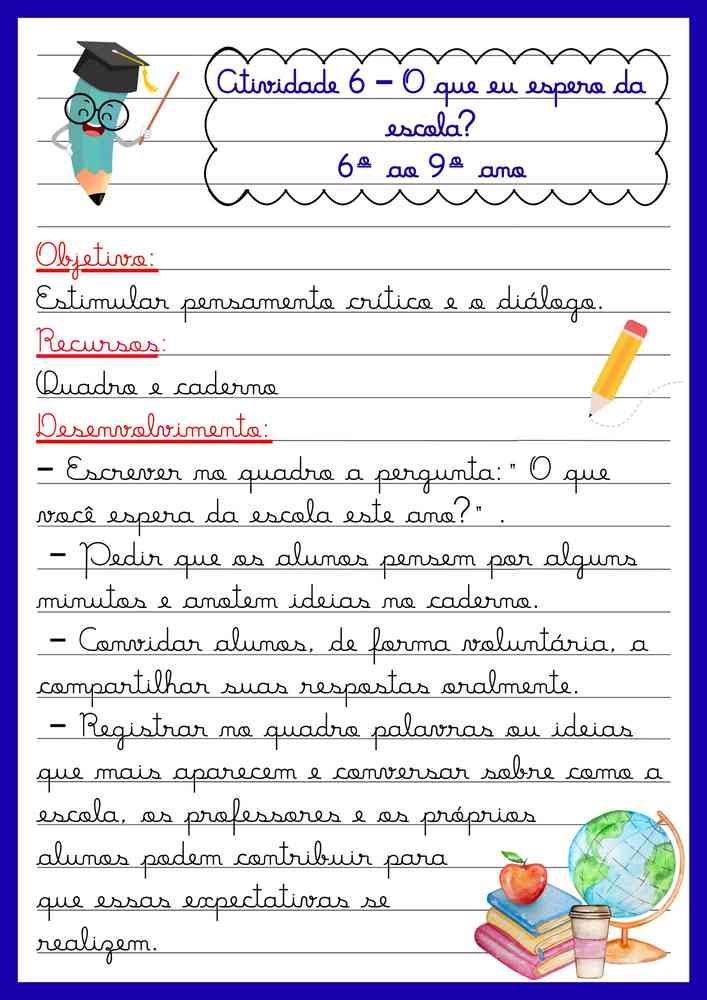 Atividade 6 - O que eu espero da
escola?
6º ao 9º ano
Objetivo:
Estimular pensamento crítico e o diálogo.
Recursos:
Quadro e caderno
Desenvolvimento:
- Escrever no quadro a pergunta: " O que
você espera da escola este ano?" .
- Pedir que os alunos pensem por alguns
minutos e anotem ideias no caderno.
- Convidar alunos, de forma voluntária, a
compartilhar suas respostas oralmente.
- Registrar no quadro palavras ou ideias
que mais aparecem e conversar sobre como a
escola, os professores e os próprios
alunos podem contribuir para
que essas expectativas se
realizem.